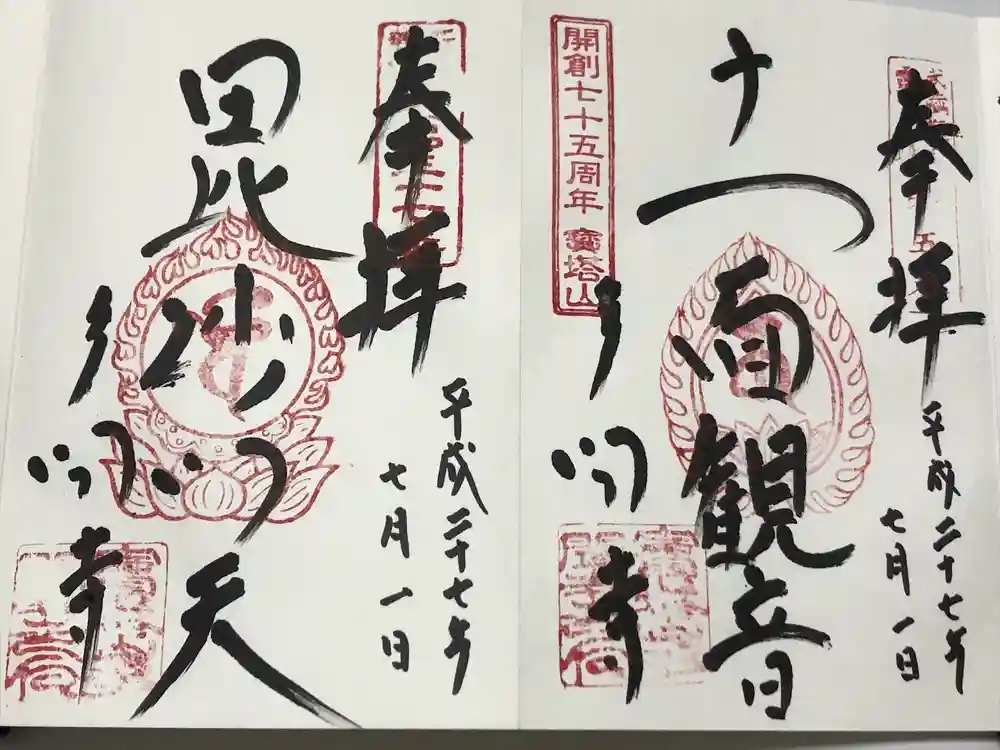 奉拝
平成二十七年
七月一日
十一面観音
開創七十五周年 寶塔山
多聞寺
奉拝
平成二十七年
七月一日
毘沙門天
多聞寺